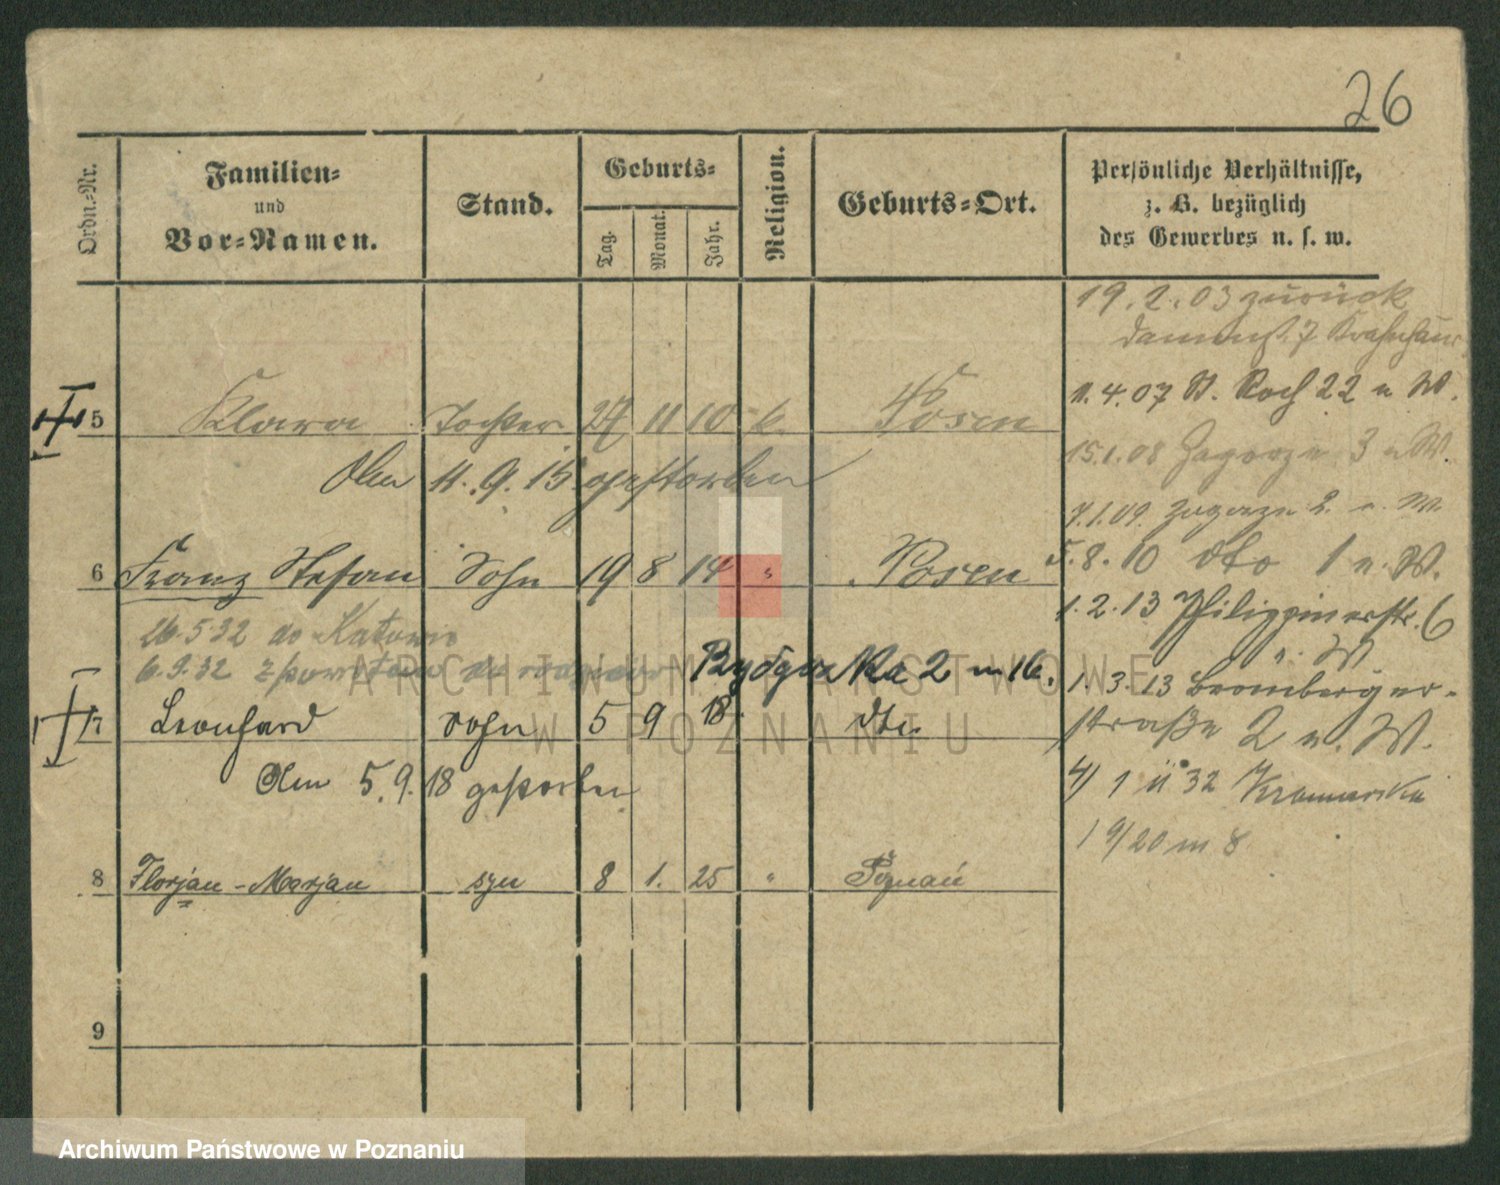 26
Ordn.-Nr.
Familien-
und
Vor-Namen.
Stand.
Geburts-
Tag.
Monat.
Jahr.
Religion.
Geburts-Ort.
Persönliche Verhältnisse,
z. B. bezüglich
des Gewerbes u. s. w.
19.2.03 zurück
7
5 Klara Tochter 27 11 10 k. Posen
11.4.07 St. Roch 22 u W.
Am 11.9.15 gestorben
15.1.08 Zagorze 3 u W.
7.1.09. Zagorze 2. u. W.
6 Franz Stefan Sohn 19 8 14 " Posen
5.8.10 dto 1 u. W.
26.5.32 do Katowic
1.2.13 Philippinerstr. 6
u. W.
6.9.32 z powrotem do
Bydgoska 2 m 16.
1.3.13 Bromberger-
straße 2 u. W.
7 Leonhard Sohn 5 9 18. dto.
Am 5.9.18 gestorben
4/1 32 Kramarska
19/20 m 8
8 Florjan - Marjan syn 8 1. 25 " Poznań
9
ARCHIWUM PAŃSTWOWE
W POZNANIU
Archiwum Państwowe w Poznaniu